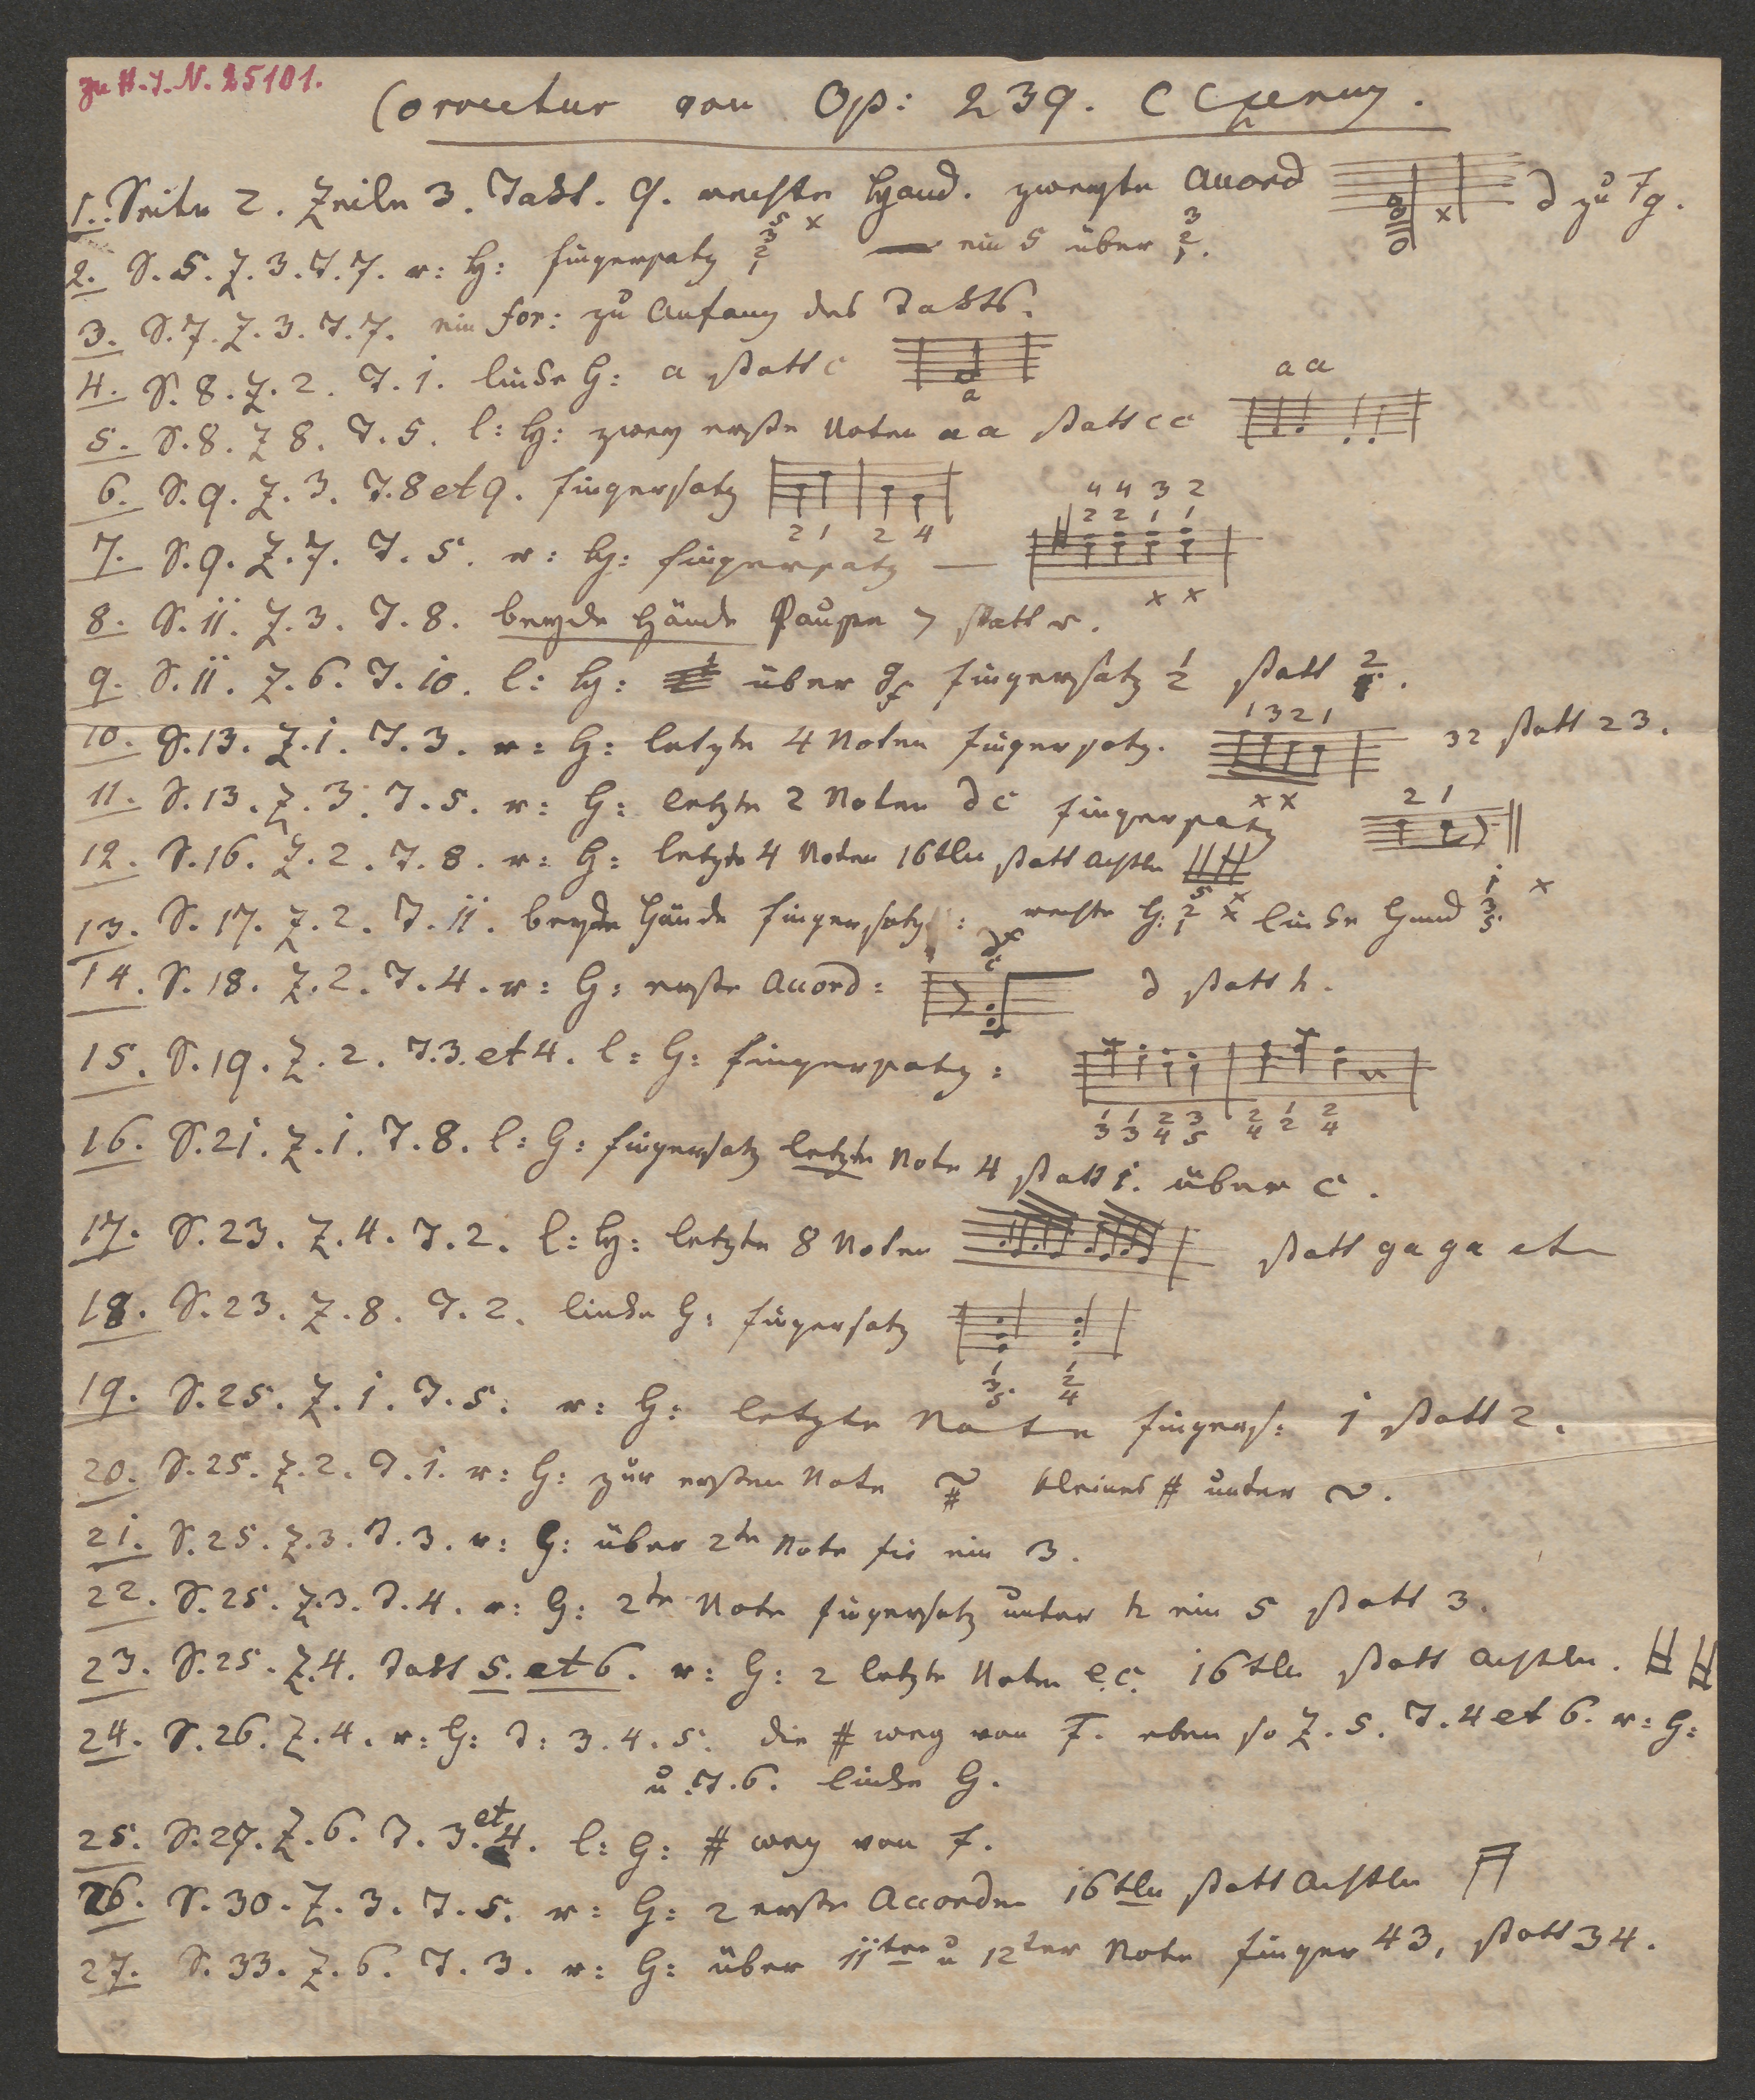 zu H.I.N. 25101.
Correctur von Op: 239. C Czerny.
1. Seite 2. Zeile 3. Takt. 9. rechte Hand. zweyte Accord x d zu fg.
2. S. 5. Z. 3. T. 7. r: H: fingersatz 5 3 2 1 x ein 5 über 3 2 1.
3. S. 7. Z. 3. T. 7. ein for: zu Anfang des Takts.
4. S. 8. Z. 2. T. 1. linke H: a statt c a
5. S. 8. Z 8. T. 5. l: H: zwey erste Noten a a statt c c a a
6. S. 9. Z. 3. T. 8 et 9. fingersatz 2 1 2 4
7. S. 9. Z. 7. T. 5. r: H: fingersatz — 4 4 3 2 2 2 1 1 x x
8. S. 11. Z. 3. T. 8. beyde Hände Pause 7 statt r.
9. S. 11. Z. 6. T. 10. l: H: über g f fingersatz 1 2 statt 2 1.
10. S. 13. Z. 1. T. 3. r: H: letzte 4 Noten fingersatz. 1 3 2 1 x x 32 statt 23.
11. S. 13. Z. 3. T. 5. r: H: letzte 2 Noten d c fingersatz 2 1
12. S. 16. Z. 2. T. 8. r: H: letzte 4 Noten 16tln statt Achtln
13. S. 17. Z. 2. T. 11. beyde Hände fingersatz: rechte H: 5 2 1 x x linke Hand 1 3 5 x
14. S. 18. Z. 2. T. 4. r: H: erste Accord: d x c d statt h.
15. S. 19. Z. 2. T. 3. et 4. l: H: fingersatz: 1 3 1 3 2 4 3 5 2 4 1 2 2 4
16. S. 21. Z. 1. T. 8. l: H: fingersatz letzte Note 4 statt 1. über c.
17. S. 23. Z. 4. T. 2. l: H: letzte 8 Noten statt g a g a etc
18. S. 23. Z. 8. T. 2. linke H: fingersatz 1 3 5 1 2 4
19. S. 25. Z. 1. T. 5. r: H: letzte Note fingers: 1 statt 2.
20. S. 25. Z. 2. T. 1. r: H: zur ersten Note ~ # kleines # unter ~.
21. S. 25. Z. 3. T. 3. r: H: über 2te Note fis ein 3.
22. S. 25. Z. 3. T. 4. r: H: 2te Note fingersatz unter h ein 5 statt 3.
23. S. 25. Z. 4. Takt 5. et 6. r: H: 2 letzte Noten e.c. 16tln statt Achtln.
24. S. 26. Z. 4. r: H: T: 3. 4. 5. die # weg von f. eben so Z. 5. T. 4 et 6. r: H:
u. T. 6. linke H.
25. S. 27. Z. 6. T. 3. et 4. l: H: # weg von f.
26. S. 30. Z. 3. T. 5. r: H: 2 erste Accorde 16tln statt Achtln
27. S. 33. Z. 6. T. 3. r: H: über 11ter u 12ter Note finger 43, statt 34.